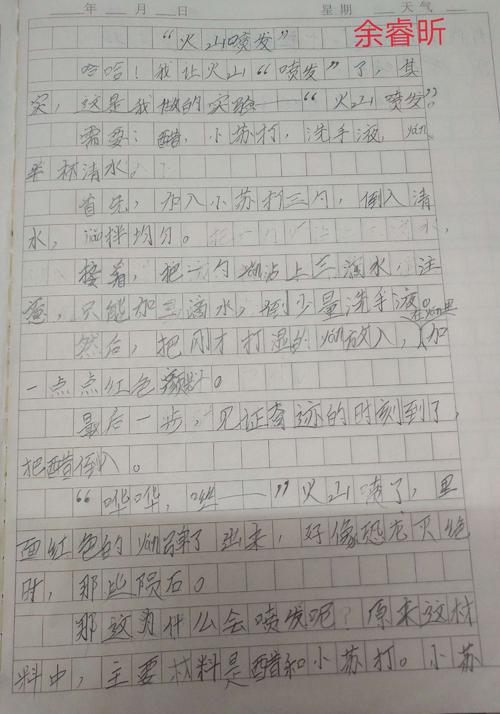 年 月 日 星期 天气
余睿昕
“火山喷发”
哈哈！我让火山“喷发”了，其
实，这是我做的实验——“火山喷发”。
需要：醋，小苏打，洗手液，yán，
半杯清水。
首先，加入小苏打三勺，倒入清
水，搅拌均匀。
接着，把一勺yán沾上三滴水，注
意，只能加三滴水，倒少量洗手液。
然后，把刚才打湿的yán放入，在yán里加
一点点红色颜料。
最后一步，见证奇迹的时刻到了，
把醋倒入。
“哗哗，哗——”火山喷了，里
面红色的yán弹了出来，好像恐龙灭绝
时，那些陨石。
那这为什么会喷发呢？原来这材
料中，主要材料是醋和小苏打。小苏